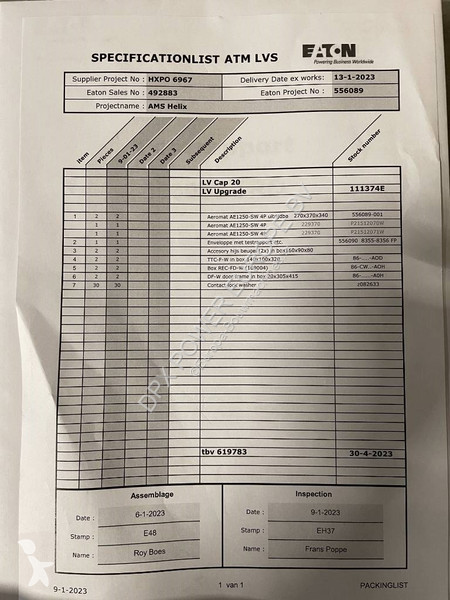 SPECIFICATIONLIST ATM LVS
EATON
Powering Business Worldwide
Supplier Project No : HXPO 6967 Delivery Date ex works: 13-1-2023
Eaton Sales No : 492883 Eaton Project No : 556089
Projectname : AMS Helix
item Pieces 9-01-23 Date 2 Date 3 Subsequent Description Stock number
LV Cap 20
LV Upgrade 111374E
1 2 2 Aeromat AE1250-SW 4P uitrijdba 270x370x340 556089-001
1 1 Aeromat AE1250-SW 4P 229370 P21512070W
1 1 Aeromat AE1250-SW 4P 229370 P21512071W
2 1 1 Enveloppe met testrapport etc. 556090 8355-8356 FF
3 2 2 Accesory hijs beugel (2x) in box160x90x80
4 2 2 TTC-F-W in box 140x160x320 B6-....-AOD
5 2 2 Box REC-FD-W (169004) B6-CW..-AOH
6 2 2 DF-W door frame in box 20x305x415 B6-....-EH
7 30 30 Contact box washer z082633
tbv 619783 30-4-2023
DPX POWER
Assemblage Inspection
Date : 6-1-2023 Date : 9-1-2023
Stamp : E48 Stamp : EH37
Name : Roy Boes Name : Frans Poppe
9-1-2023 1 van 1 PACKINGLIST